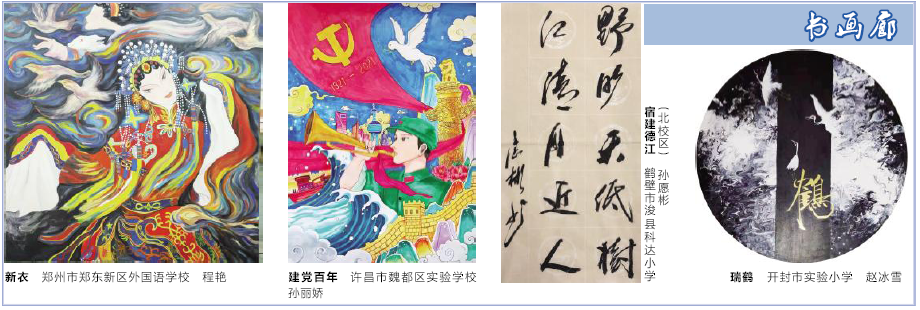 书画廊
1921—2021
新衣 郑州市郑东新区外国语学校 程艳
建党百年 许昌市魏都区实验学校
孙丽娇
野旷天低树
江清月近人
宿建德江 鹤壁市浚县科达小学
（北校区） 孙愿彬
鹤
瑞鹤 开封市实验小学 赵冰雪